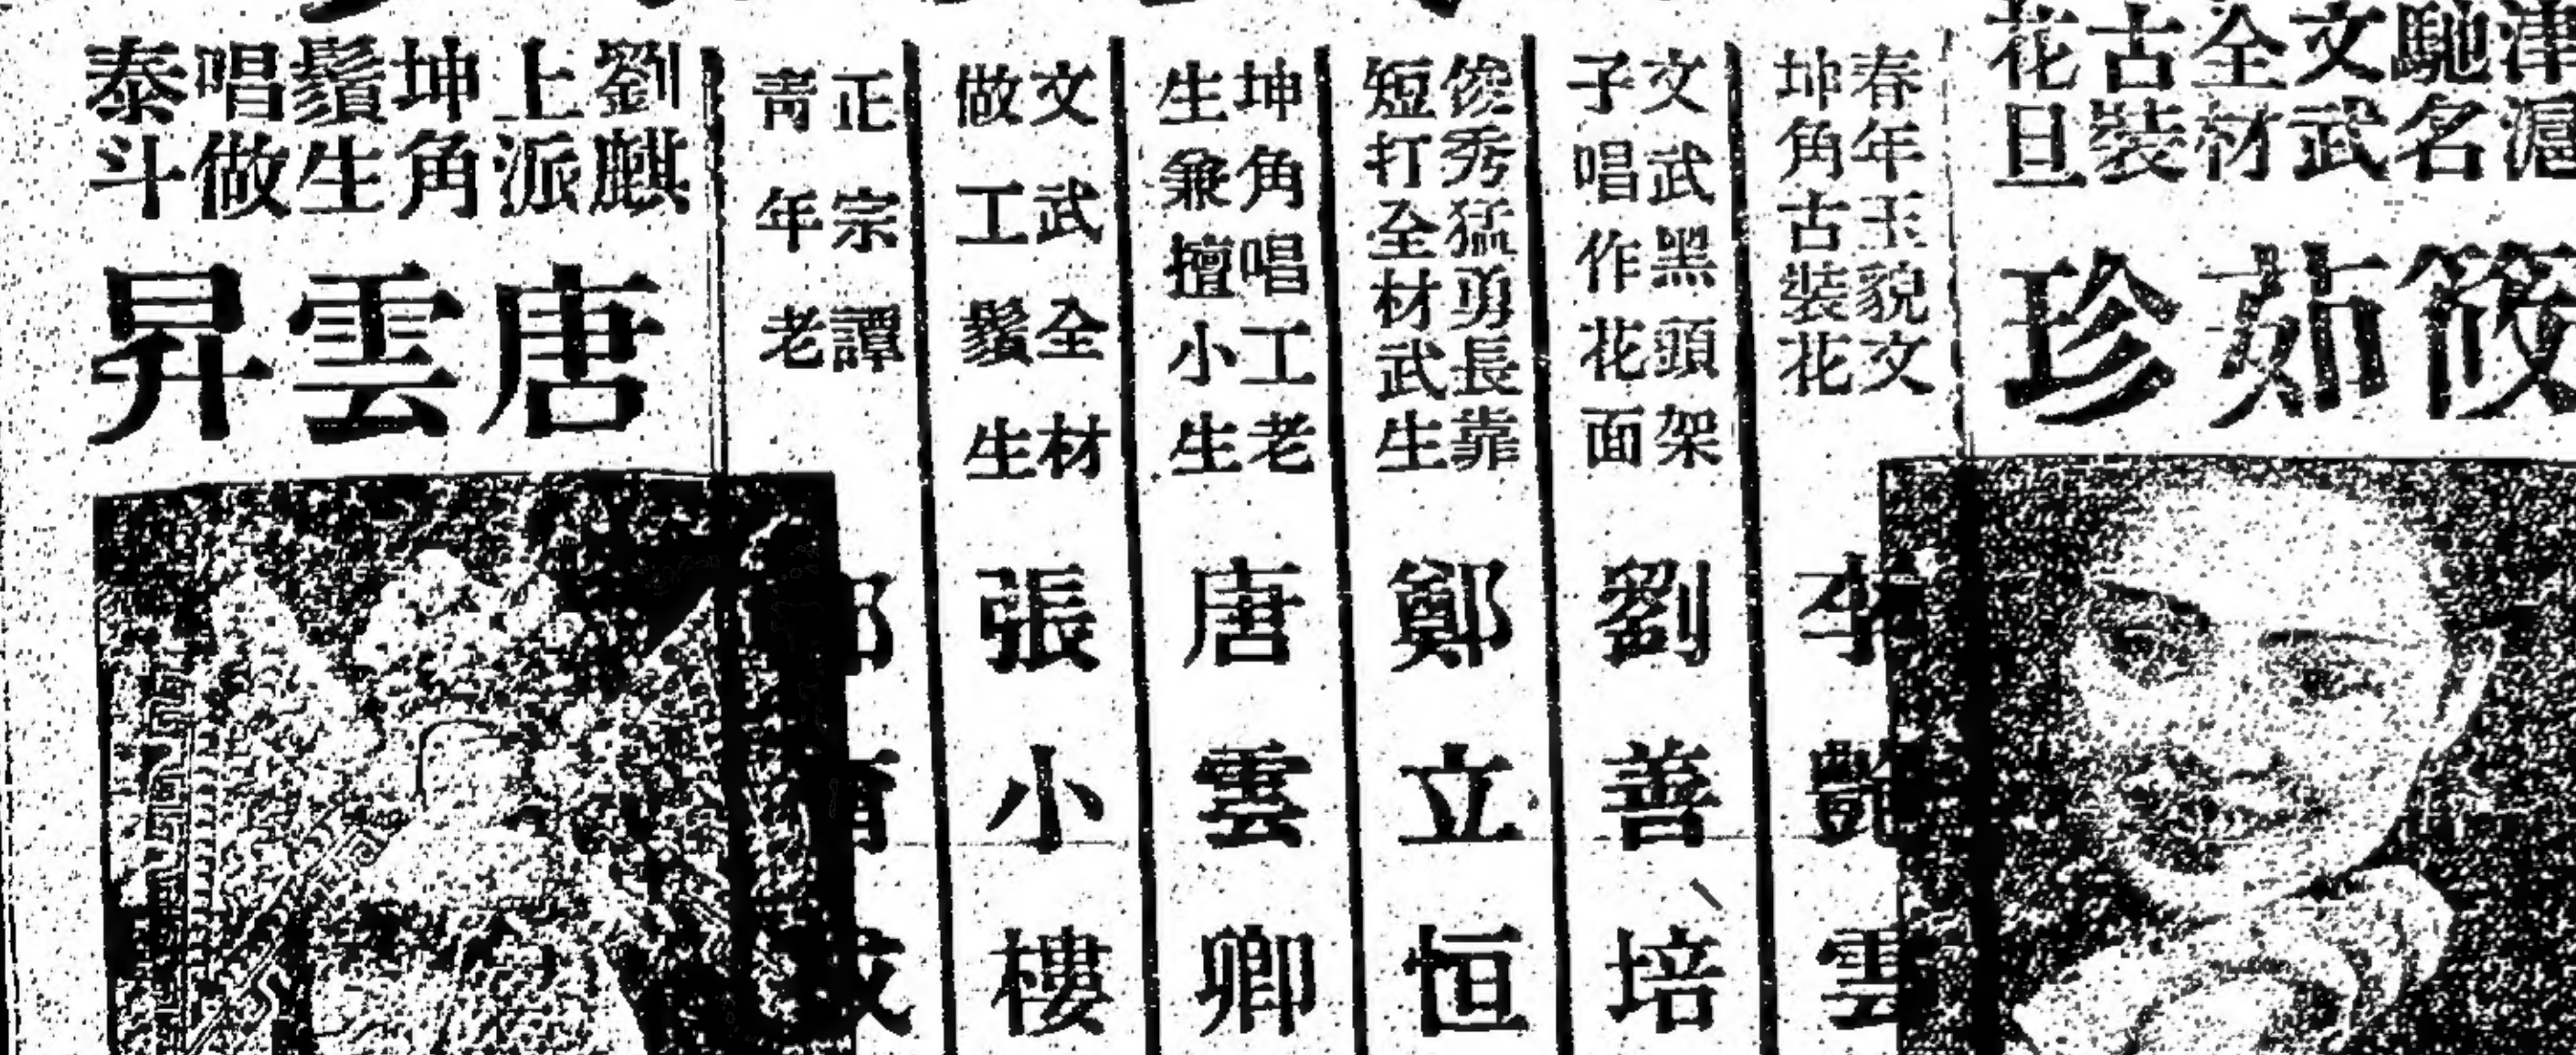 津滬
馳名
文武
全材
古裝
花旦
筱茹珍
春年玉貌文
坤角古裝花
李艷雲
文武黑頭架
子唱作花面
劉善培
俊秀猛勇長靠
短打全材武生
鄭立恒
坤角唱工老
生兼擅小生
唐雲卿
文武全材
做工鬚生
張小樓
正宗譚
青年老
劉麒
上派
坤角
鬚生
唱做
泰斗
唐雲昇